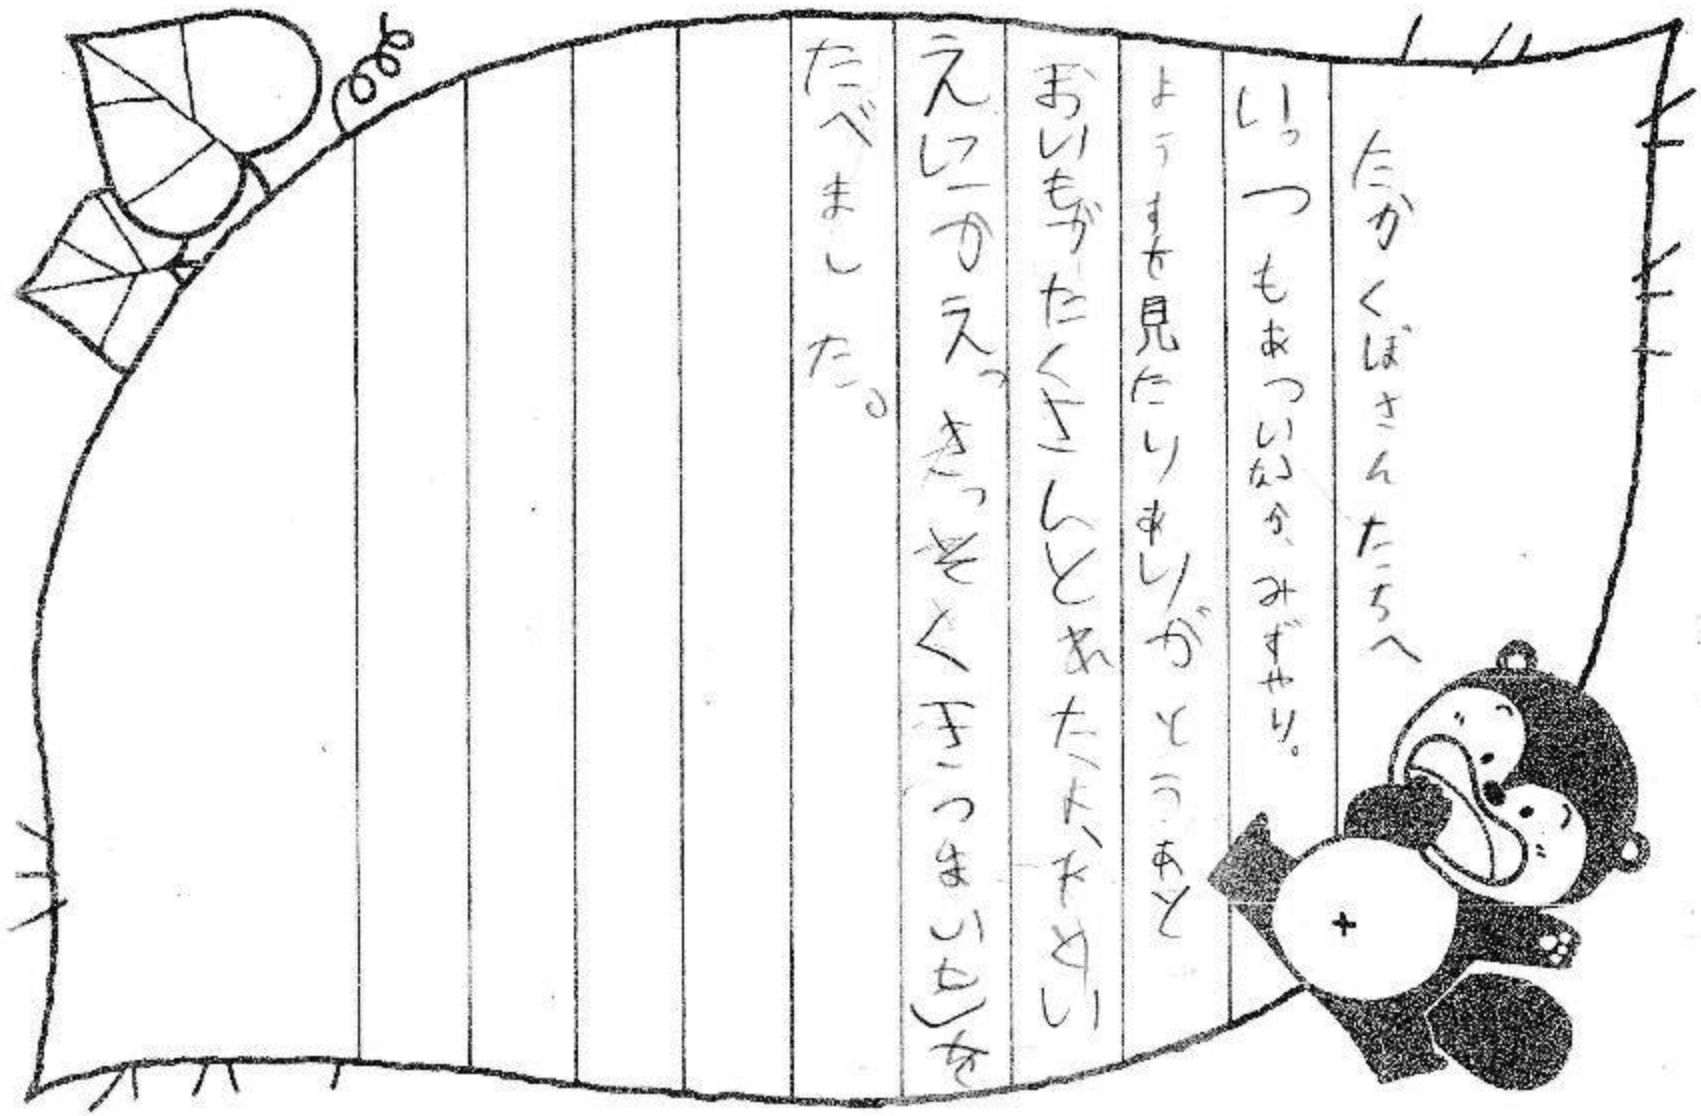 たかくぼさんたちへ
いっつもあついなか、みずやり。
ようすを見たりありがとうあと
おいもがたくさんとれた い
えにかえっさっそくさつまいもを
たべました。